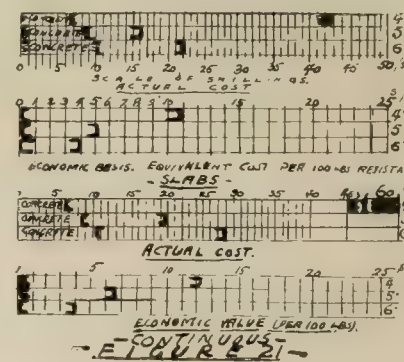 CONCRETE 4
CONCRETE 5
CONCRETE 6
5 10 15 20 25 30 35 40 45 50
SCALE OF SHILLINGS.
ACTUAL COST
0 1 2 3 4 5 6 7 8 9 10 15 20 25
4
5
6
ECONOMIC BASIS. EQUIVALENT COST PER 100 LBS
- SLABS -
5 10 15 20 25 30 35 40 60
CONCRETE
CONCRETE
CONCRETE
ACTUAL COST.
1 5 10 15 20 25
4
5
6
ECONOMIC VALUE (PER 100 LBS).
- CONTINUOUS -
- FIGURE 21 -